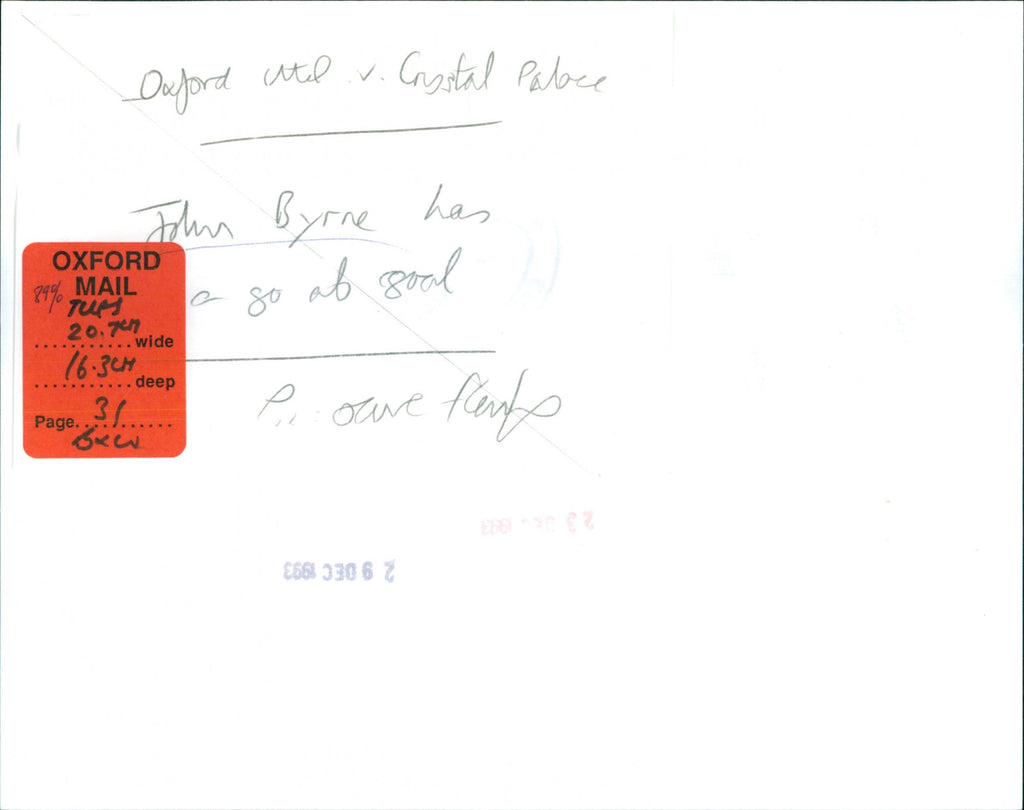 Oxford Utd v. Crystal Palace
John Byrne has
a go at goal
OXFORD
MAIL
89%
TUES
20.7cm
wide
16.3cm
deep
Page 31
P:
29 DEC 1993
DEC 1993